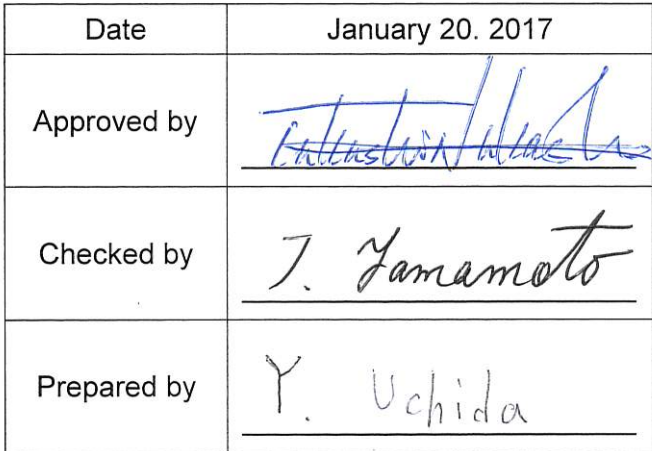 Date January 20. 2017
Approved by
Checked by J. Yamamoto
Prepared by Y. Uchida